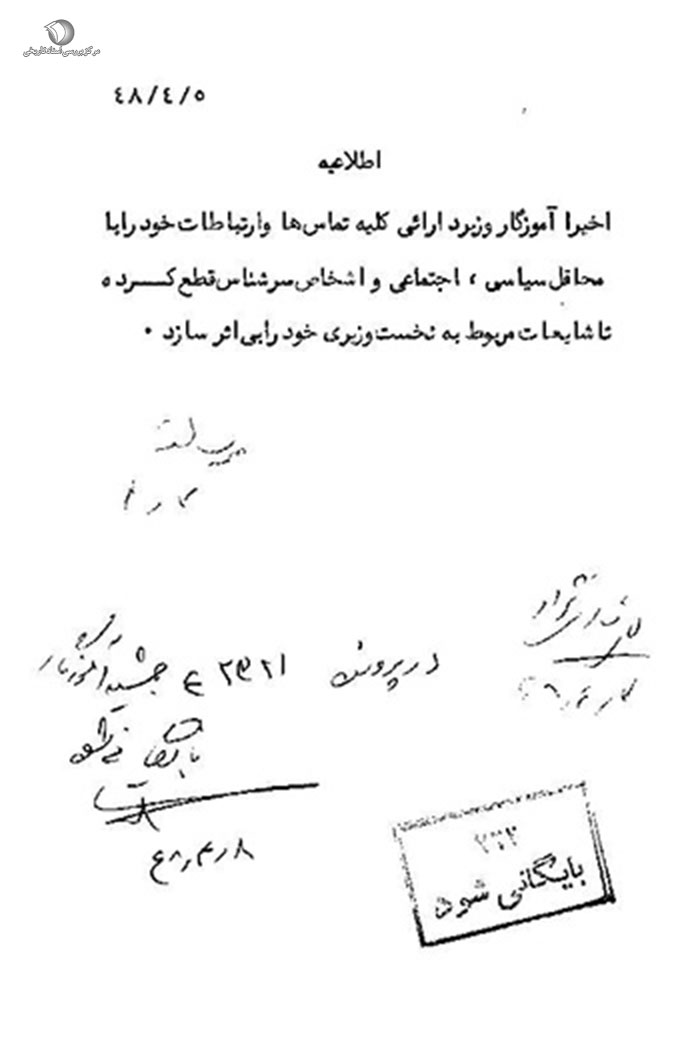 مرکز بررسی اسناد تاریخی
٤٨/٤/٥
اطلاعیه
اخیرا آموزگار وزیرد ارائی کلیه تماس ها وارتباطات خود رابا
محافل سیاسی ، اجتماعی و اشخاص سرشناس قطع کرده
تا شایعات مربوط به نخست وزیری خود رابی اثر سازد .
در پرونده ۲۳۲۱ ع جمشید آموزگار
بایگانی شود
۴۸٫۴٫۸
۳۲۲
بایگانی شود